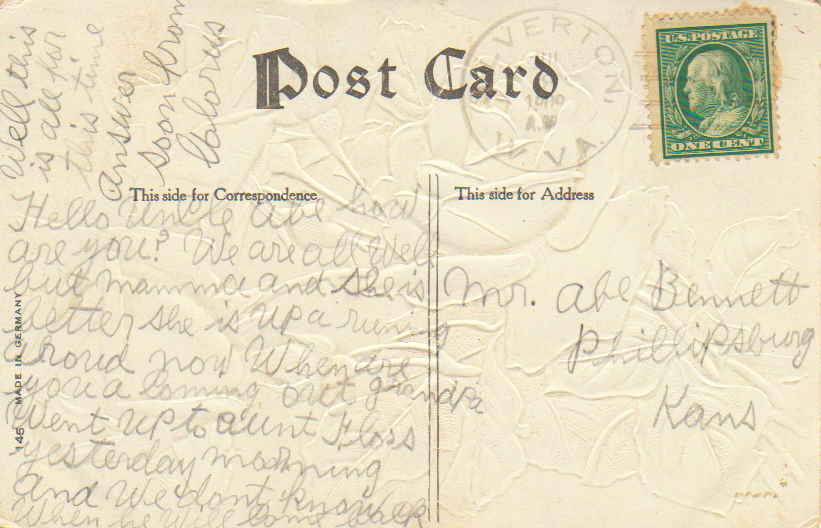 Post Card
VERTON,
A.M.
W. VA.
U.S. POSTAGE
ONE CENT
This side for Correspondence
This side for Address
Hello Uncle Abe how
are you? We are all well
but mamma and she is
better she is up a runing
aroud now When are
you a coming out grandpa
Went up to aunt Floss
yesterday morning
and We dont know
When he Will come back
Well this
is all for
this time
answer
soon from
Mr. Abe Bennett
Phillipsburg
Kans
145 MADE IN GERMANY